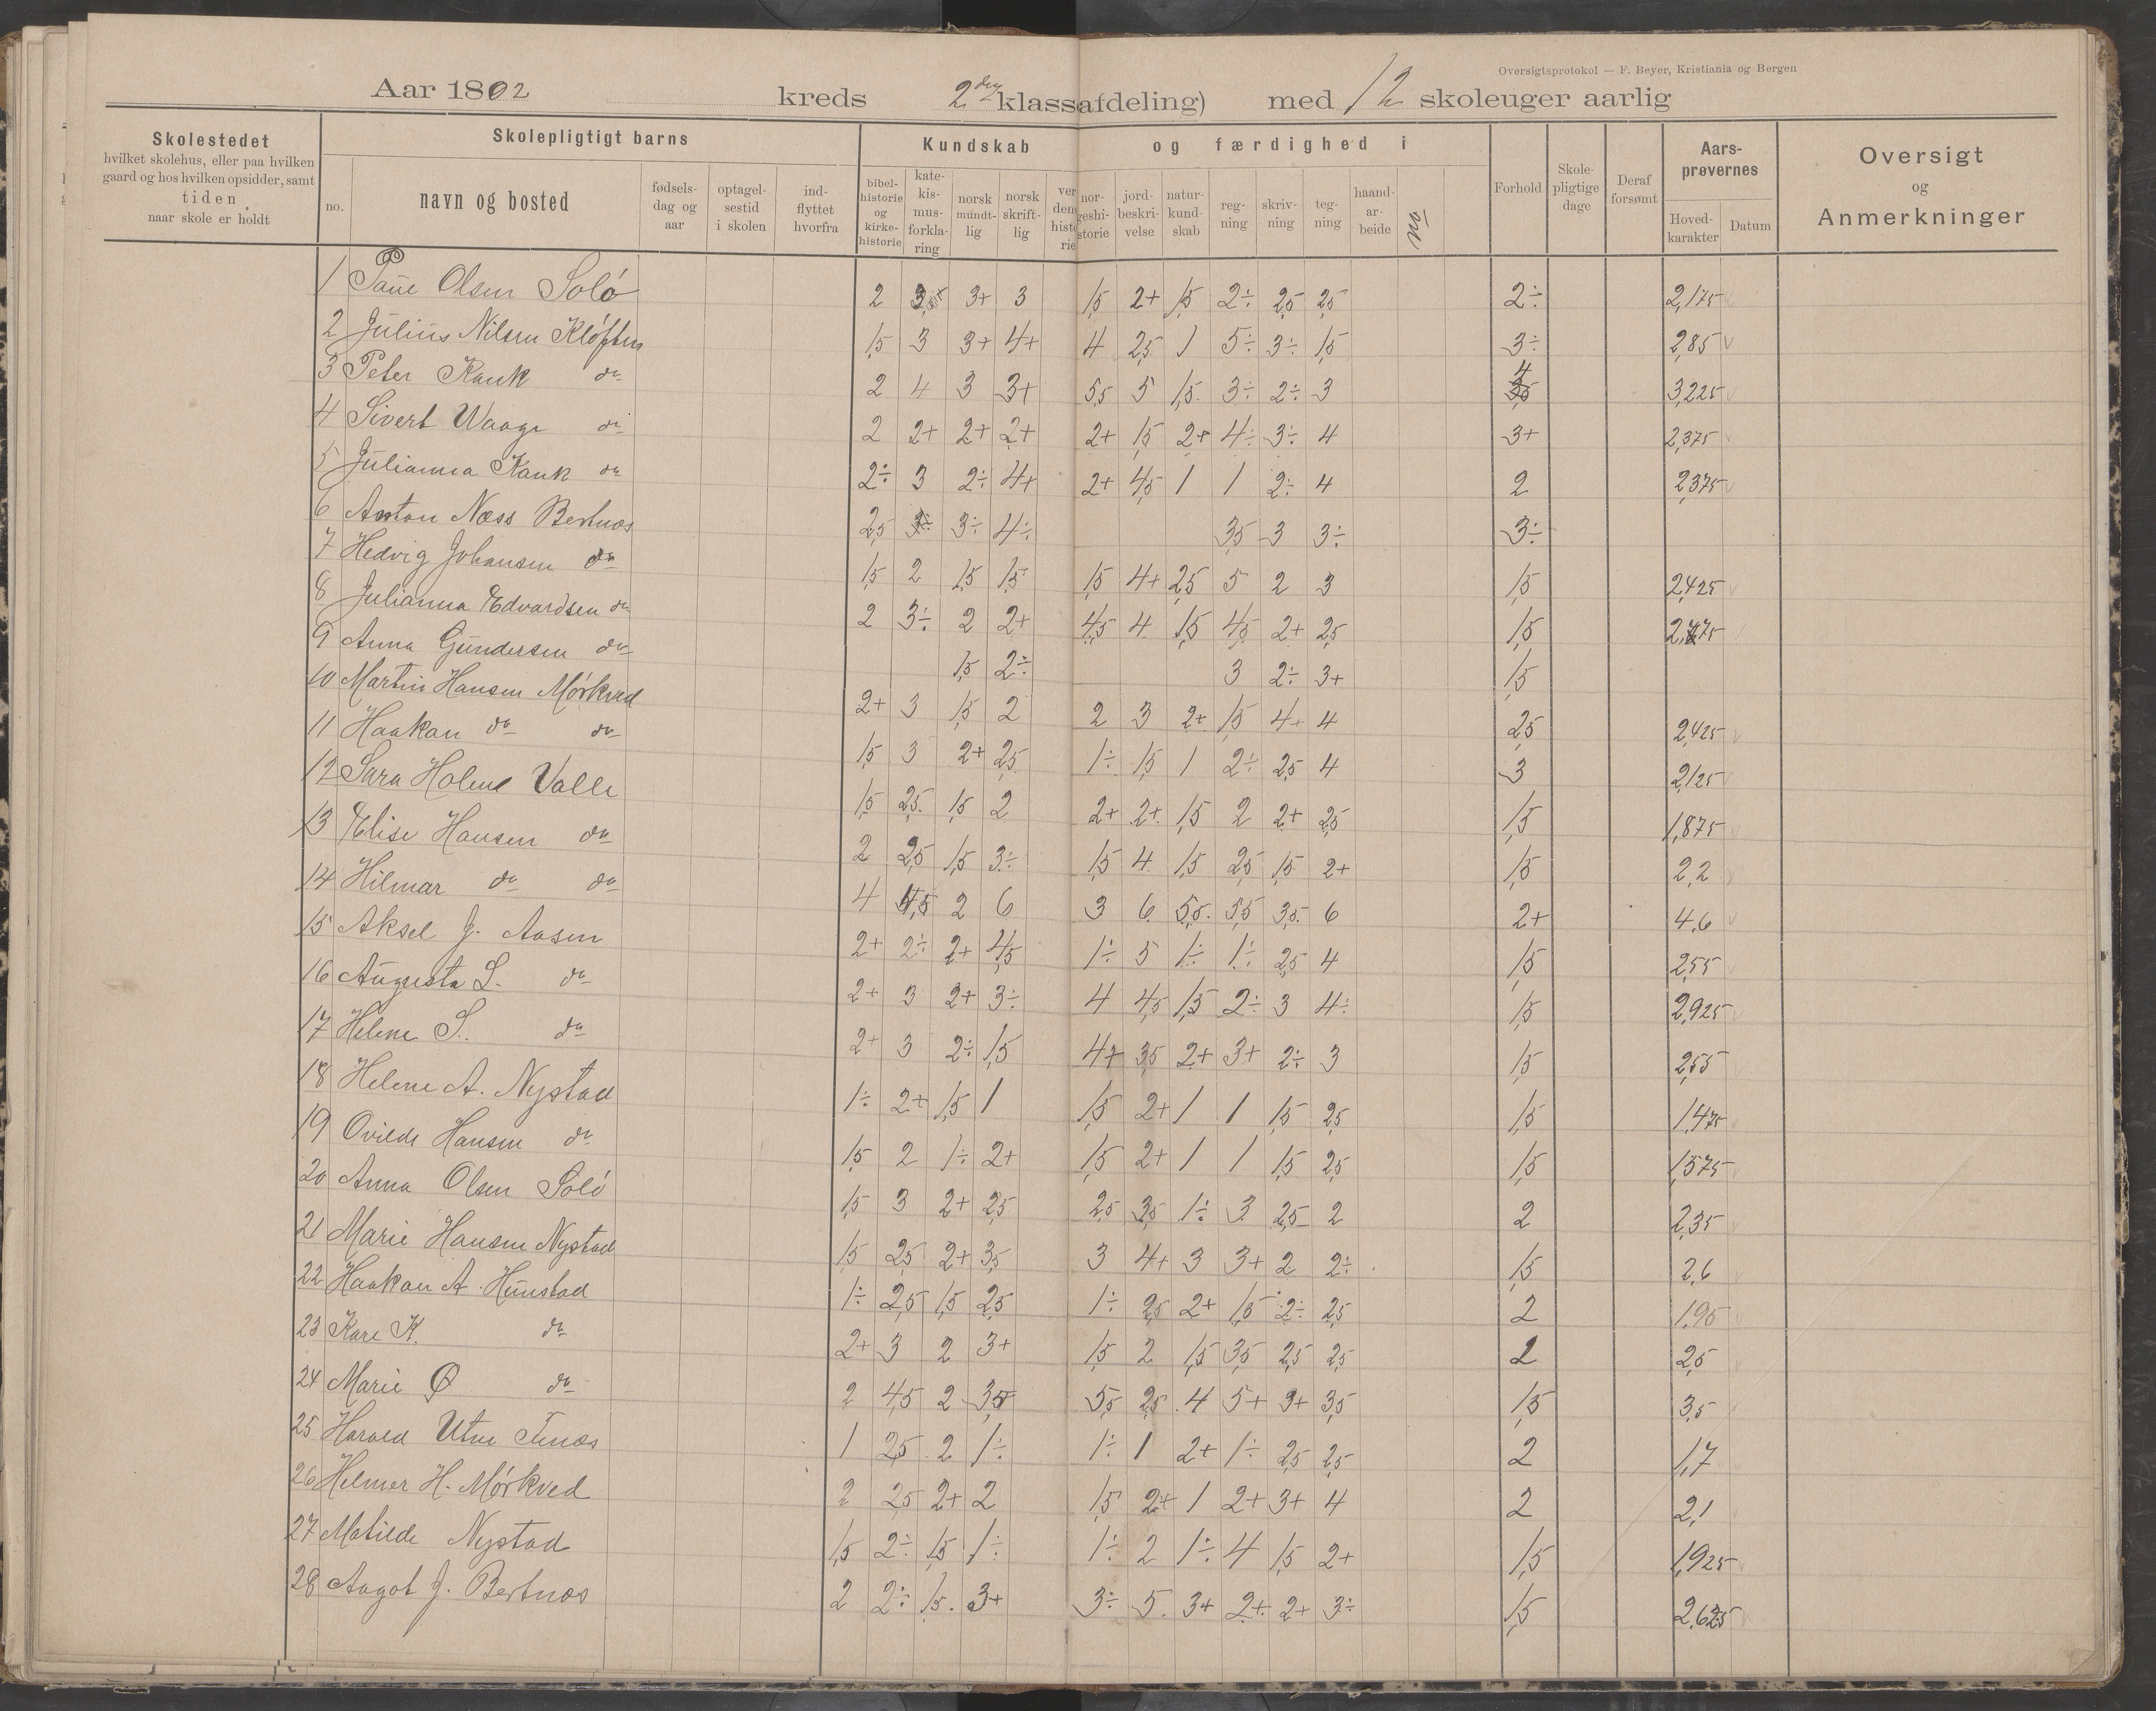 Oversigtsprotokol — F. Beyer, Kristiania og Bergen
Aar 1802 kreds 2den klasse (afdeling) med 12 skoleuger aarlig
Skolestedet hvilket skolehus, eller paa hvilken gaard og hos hvilken opsidder, samt tiden, naar skole er holdt
Skolepligtigt barns
no. navn og bosted fødsels- dag og aar optagel- sestid i skolen ind- flyttet hvorfra
Kundskab og færdighed i
bibel- historie og kirke- historie kate- kis- mus- forkla- ring norsk mundt- lig norsk skrift- lig ver dens histo rie nor- geshi- storie jord- beskri- velse natur- kund- skab reg- ning skriv- ning teg- ning haand- ar- beide
Forhold Skole- pligtige dage Deraf forsømt Aars- prøvernes Hoved- karakter Datum
Oversigt og Anmerkninger
1 Olsen Solö 2 3 3+ 3 1,5 2+ 1,5 2÷ 2,5 2,5 2÷ 2,175
2 Julius Nilsen Kløften 1,5 3 3+ 4+ 4 2,5 1 5÷ 3÷ 1,5 3÷ 2,85
3 Peter Kauk do 2 4 3 3+ 5,5 5 1,5 3÷ 2÷ 3 4 3,225
4 Sivert Waage do 2 2+ 2+ 2+ 2+ 1,5 2+ 4÷ 3÷ 4 3+ 2,375
5 Julianna Kauk do 2÷ 3 2÷ 4+ 2+ 4,5 1 1 2÷ 4 2 2,375
6 Anton Næss Bertnæs 2,5 3÷ 3÷ 4÷ 3,5 3 3÷ 3÷
7 Hedvig Johansen do 1,5 2 1,5 1,5 1,5 4+ 2,5 5 2 3 1,5 2,425
8 Julianna Edvardsen do 2 3÷ 2 2+ 4,5 4 1,5 4,5 2+ 2,5 1,5 2,775
9 Anna Gundersen do 1,5 2÷ 3 2÷ 3+ 1,5
10 Martin Hansen Mørkved 2+ 3 1,5 2 2 3 2+ 1,5 4+ 4 2,5 2,425
11 Haakan do do 1,5 3 2+ 2,5 1÷ 1,5 1 2÷ 2,5 4 3 2,125
12 Sara Holme Valle 1,5 2,5 1,5 2 2+ 2+ 1,5 2 2+ 2,5 1,5 1,875
13 Elise Hansen do 2 2,5 1,5 3÷ 1,5 4 1,5 2,5 1,5 2+ 1,5 2,2
14 Hilmar do do 4 4,5 2 6 3 6 5,5 5,5 3,5 6 2+ 4,6
15 Aksel J. Aasen 2+ 2÷ 2+ 4,5 1÷ 5 1÷ 1÷ 2,5 4 1,5 2,55
16 Augusta L. do 2+ 3 2+ 3÷ 4 4,5 1,5 2÷ 3 4÷ 1,5 2,925
17 Helene S. do 2+ 3 2÷ 1,5 4+ 3,5 2+ 3+ 2÷ 3 1,5 2,55
18 Helene A. Nystad 1÷ 2+ 1,5 1 1,5 2+ 1 1 1,5 2,5 1,5 1,475
19 Ovilde Hansen do 1,5 2 1÷ 2+ 1,5 2+ 1 1 1,5 2,5 1,5 1,575
20 Anna Olsen Solö 1,5 3 2+ 2,5 2,5 3,5 1÷ 3 2,5 2 2 2,35
21 Marie Hansen Nystad 1,5 2,5 2+ 3,5 3 4+ 3 3+ 2 2÷ 1,5 2,6
22 Haakan A. Hunstad 1÷ 2,5 1,5 2,5 1÷ 2,5 2+ 1,5 2÷ 2,5 2 1,95
23 Kare K. do 2+ 3 2 3+ 1,5 2 1,5 3,5 2,5 2,5 2 2,5
24 Marie Ø do 2 4,5 2 3,5 5,5 2,5 4 5+ 3+ 3,5 1,5 3,5
25 Harald Utne Tnæs 1 2,5 2 1÷ 1÷ 1 2+ 1÷ 2,5 2,5 2 1,7
26 Helmer H. Mørkved 2 2,5 2+ 2 1,5 2+ 1 2+ 3+ 4 2 2,1
27 Matilde Nystad 1,5 2÷ 1,5 1÷ 1÷ 2 1÷ 4 1,5 2+ 1,5 1,925
28 Aagot J. Bertnæs 2 2÷ 1,5 3+ 3÷ 5 3+ 2+ 2+ 3÷ 1,5 2,625